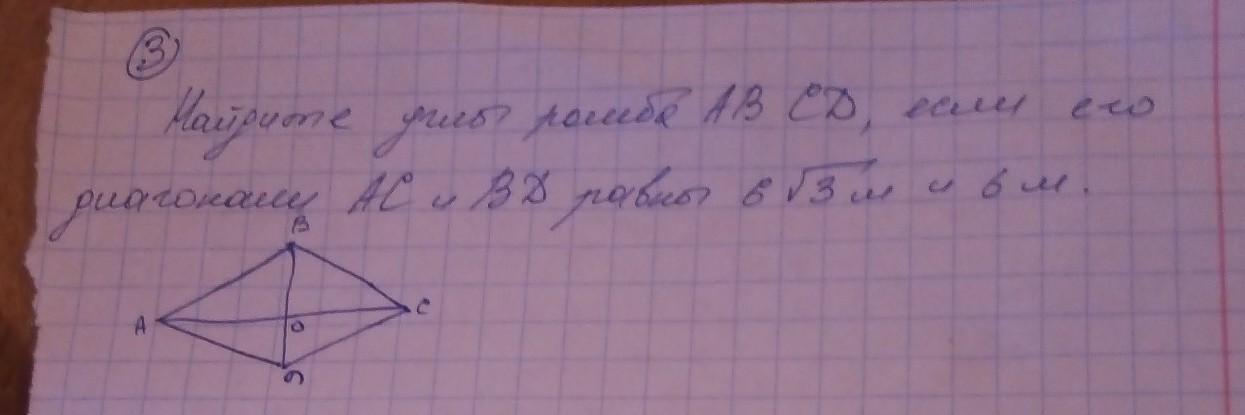 3
Найдите углы ромба ABCD, если его
диагонали AC и BD равны 6√3 м и 6 м.
B
A O C
D